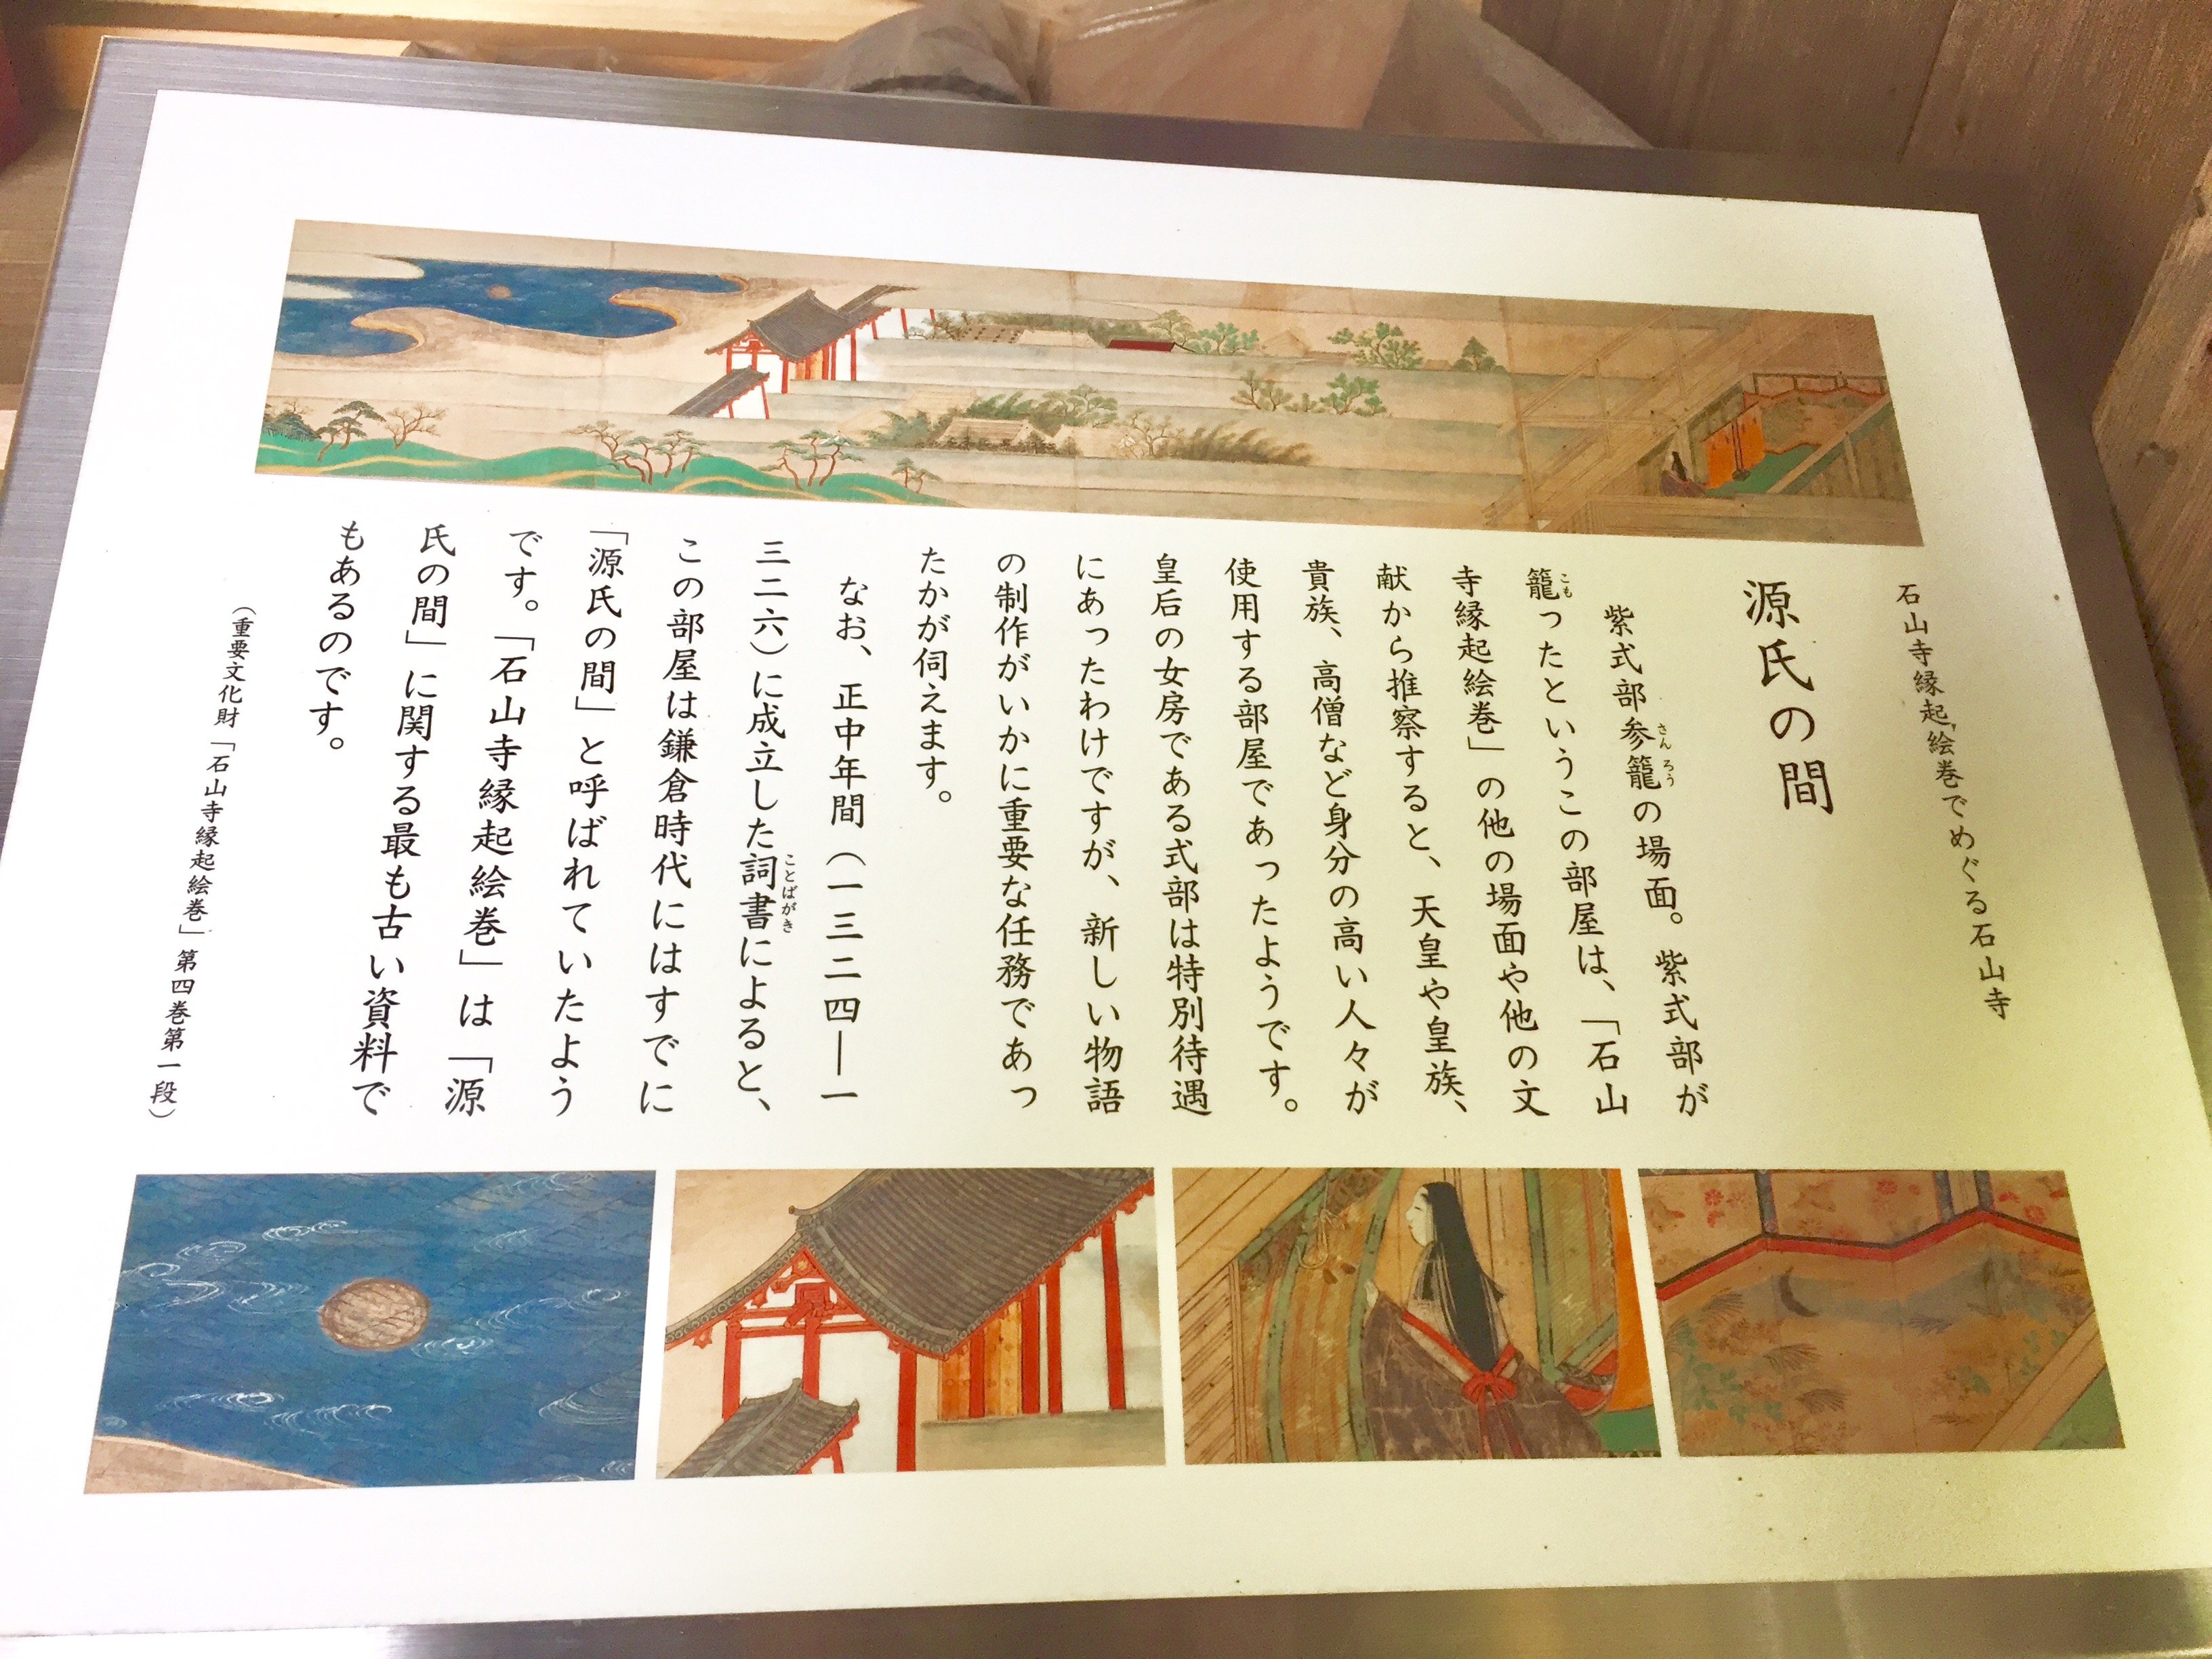 石山寺縁起絵巻でめぐる石山寺
源氏の間
紫式部参籠の場面。紫式部が
さんろう
籠ったというこの部屋は、「石山
こも
寺縁起絵巻」の他の場面や他の文
献から推察すると、天皇や皇族、
貴族、高僧など身分の高い人々が
使用する部屋であったようです。
皇后の女房である式部は特別待遇
にあったわけですが、新しい物語
の制作がいかに重要な任務であっ
たかが伺えます。
なお、正中年間（一三二四―一
三二六）に成立した詞書によると、
ことばがき
この部屋は鎌倉時代にはすでに
「源氏の間」と呼ばれていたよう
です。「石山寺縁起絵巻」は「源
氏の間」に関する最も古い資料で
もあるのです。
（重要文化財「石山寺縁起絵巻」第四巻第一段）